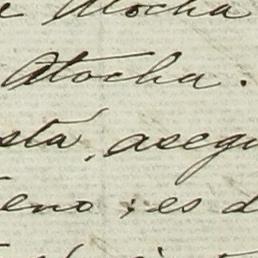 e Atocha
Atocha.
sta, asegu
eno; es d